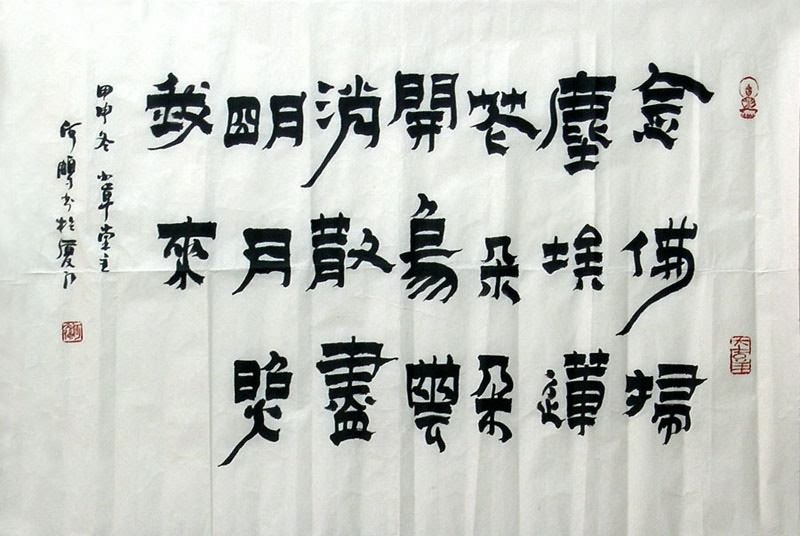 念佛掃
塵埃蓮
花朵朵
開烏雲
消散盡
明月照
我來
甲申冬小草堂主
何鵬书於廈门